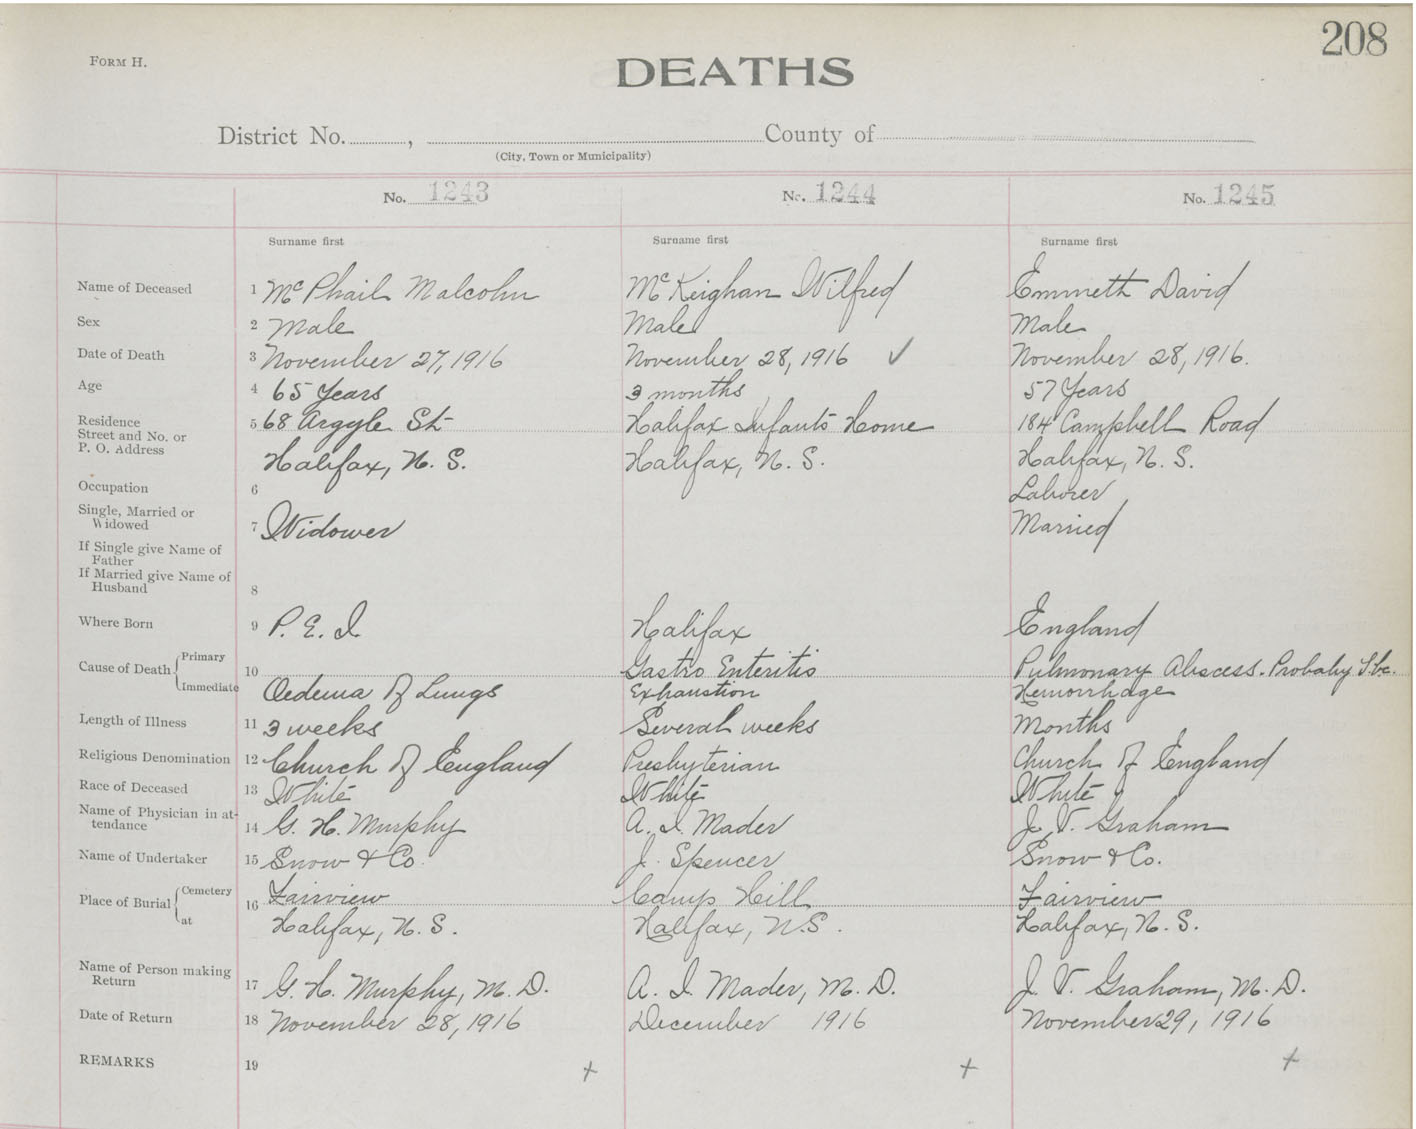 208
FORM H.
DEATHS
District No. , County of
(City, Town or Municipality)
No. 1243 No. 1244 No. 1245
Surname first Surname first Surname first
Name of Deceased 1 McPhail Malcolm McKeighan Wilfred Emmeth David
Sex 2 Male Male Male
Date of Death 3 November 27, 1916 November 28, 1916 ✓ November 28, 1916.
Age 4 65 Years 3 months 57 Years
Residence Street and No. or P. O. Address 5 68 Argyle St Halifax Infants Home 184 Campbell Road
Halifax, N. S. Halifax, N. S. Halifax, N. S.
Occupation 6 Laborer
Single, Married or Widowed 7 Widower Married
If Single give Name of Father
If Married give Name of Husband 8
Where Born 9 P. E. I. Halifax England
Cause of Death Primary 10 Gastro Enteritis Pulmonary Abscess. Probaby T.b.c.
Immediate Oedema of Lungs Exhaustion Hemorrhage
Length of Illness 11 3 weeks Several weeks Months
Religious Denomination 12 Church of England Presbyterian Church of England
Race of Deceased 13 White White White
Name of Physician in attendance 14 G. H. Murphy A. I. Mader J. V. Graham
Name of Undertaker 15 Snow & Co. J. Spencer Snow & Co.
Place of Burial Cemetery 16 Fairview Camp Hill Fairview
at Halifax, N. S. Halifax, N.S. Halifax, N. S.
Name of Person making Return 17 G. H. Murphy, M. D. A. I. Mader, M. D. J. V. Graham, M. D.
Date of Return 18 November 28, 1916 December 1916 November 29, 1916
REMARKS 19 + + +